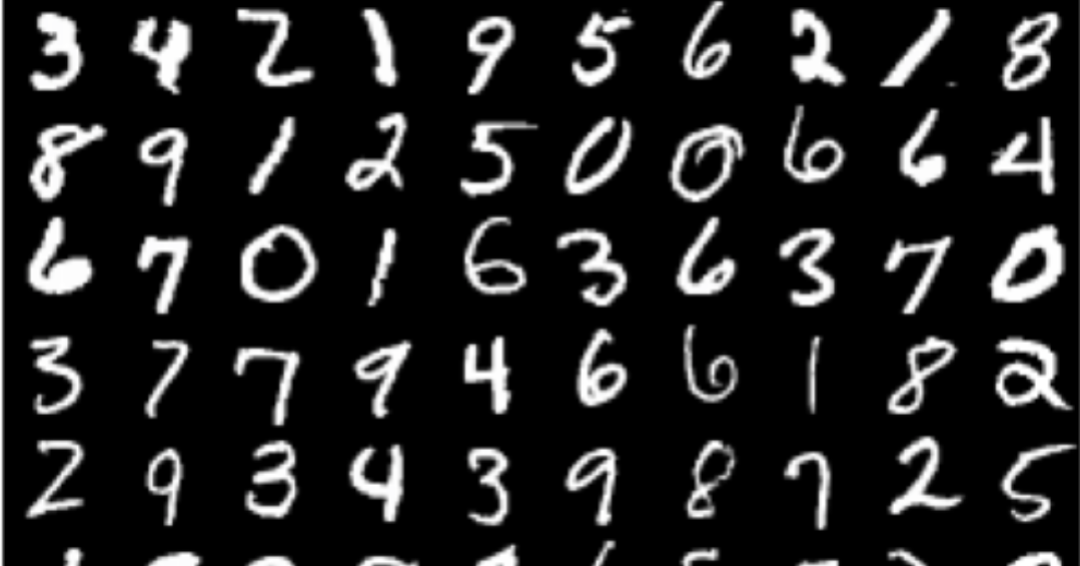 3 4 2 1 9 5 6 2 1 8
8 9 1 2 5 0 0 6 6 4
6 7 0 1 6 3 6 3 7 0
3 7 7 9 4 6 6 1 8 2
2 9 3 4 3 9 8 7 2 5